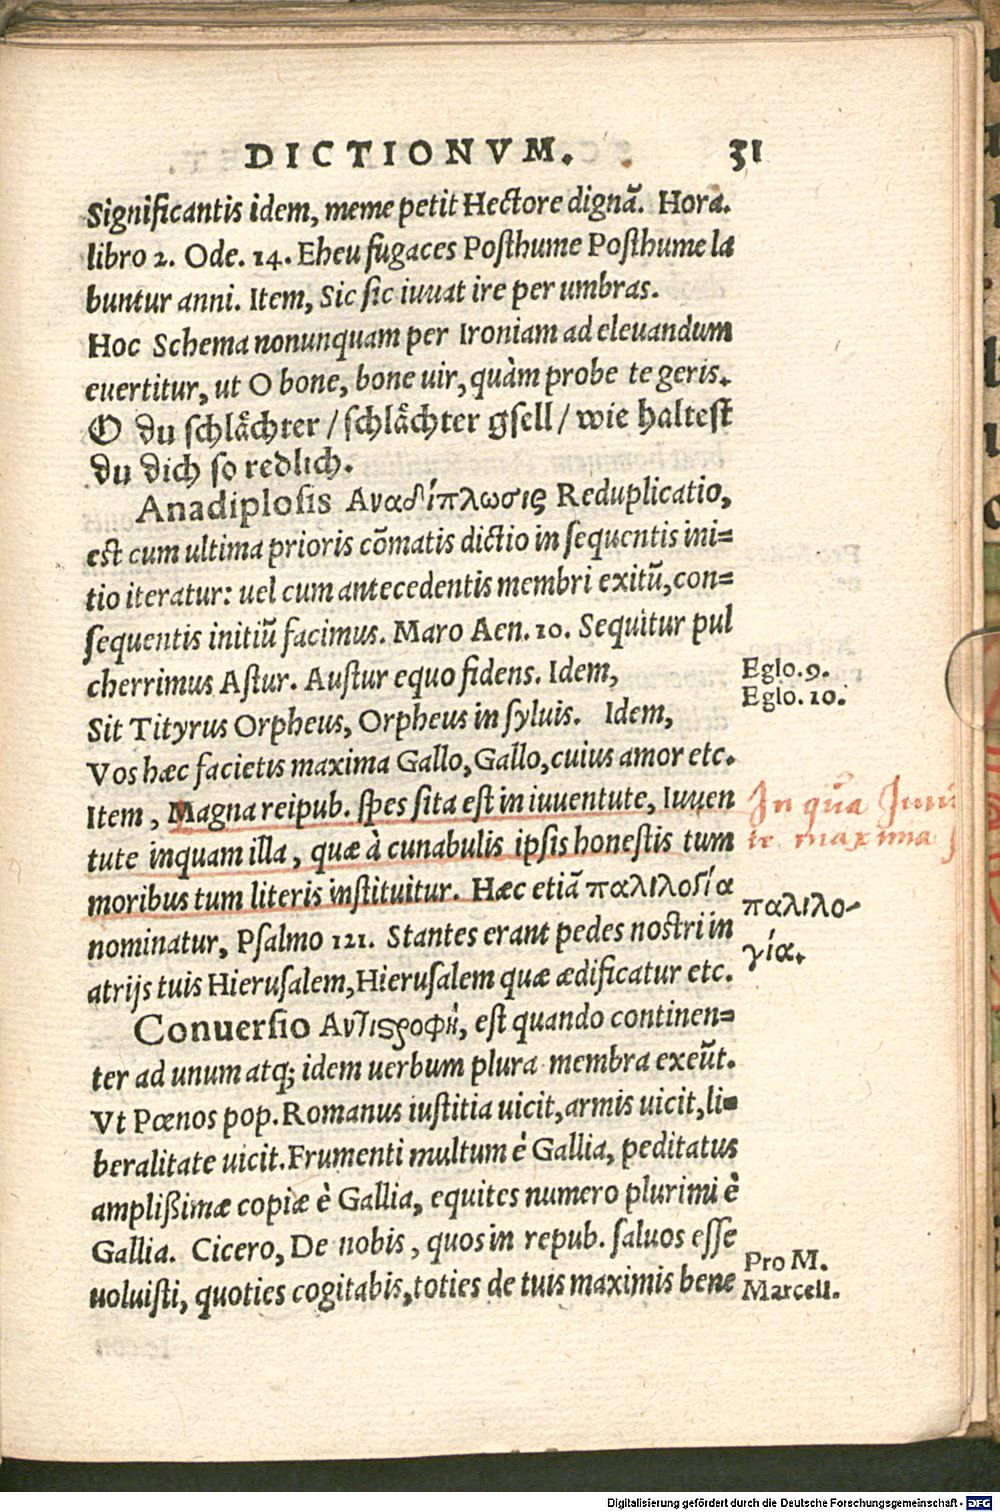 DICTIONVM. 31
Significantis idem, meme petit Hectore dignā. Hora.
libro 2. Ode. 14. Eheu fugaces Posthume Posthume la
buntur anni. Item, Sic sic iuuat ire per umbras.
Hoc Schema nonunquam per Ironiam ad eleuandum
euertitur, ut O bone, bone uir, quàm probe te geris.
O du schlaͤchter / schlaͤchter gsell / wie haltest
du dich so redlich.
Anadiplosis Αναδίπλωσις Reduplicatio,
est cum ultima prioris cōmatis dictio in sequentis ini=
tio iteratur: uel cum antecedentis membri exitū, con=
sequentis initiū facimus. Maro Aen. 10. Sequitur pul
cherrimus Astur. Austur equo fidens. Idem,
Eglo. 9.
Sit Tityrus Orpheus, Orpheus in syluis. Idem,
Eglo. 10.
Vos hæc facietis maxima Gallo, Gallo, cuius amor etc.
Item, Magna reipub. spes sita est in iuuentute, Iuuen
In qua
tute inquam illa, quæ à cunabulis ipsis honestis tum
te maxima
moribus tum literis instituitur. Hæc etiā παλιλογία
παλιλο-
nominatur, Psalmo 121. Stantes erant pedes nostri in
γία.
atrijs tuis Hierusalem, Hierusalem quæ ædificatur etc.
Conuersio Αντιστροφὴ, est quando continen=
ter ad unum atq; idem uerbum plura membra exeūt.
Vt Pœnos pop. Romanus iustitia uicit, armis uicit, li=
beralitate uicit. Frumenti multum è Gallia, peditatus
amplißimæ copiæ è Gallia, equites numero plurimi è
Gallia. Cicero, De nobis, quos in repub. saluos esse
Pro M.
uoluisti, quoties cogitabis, toties de tuis maximis bene
Marcell.
Digitalisierung gefördert durch die Deutsche Forschungsgemeinschaft - DFG